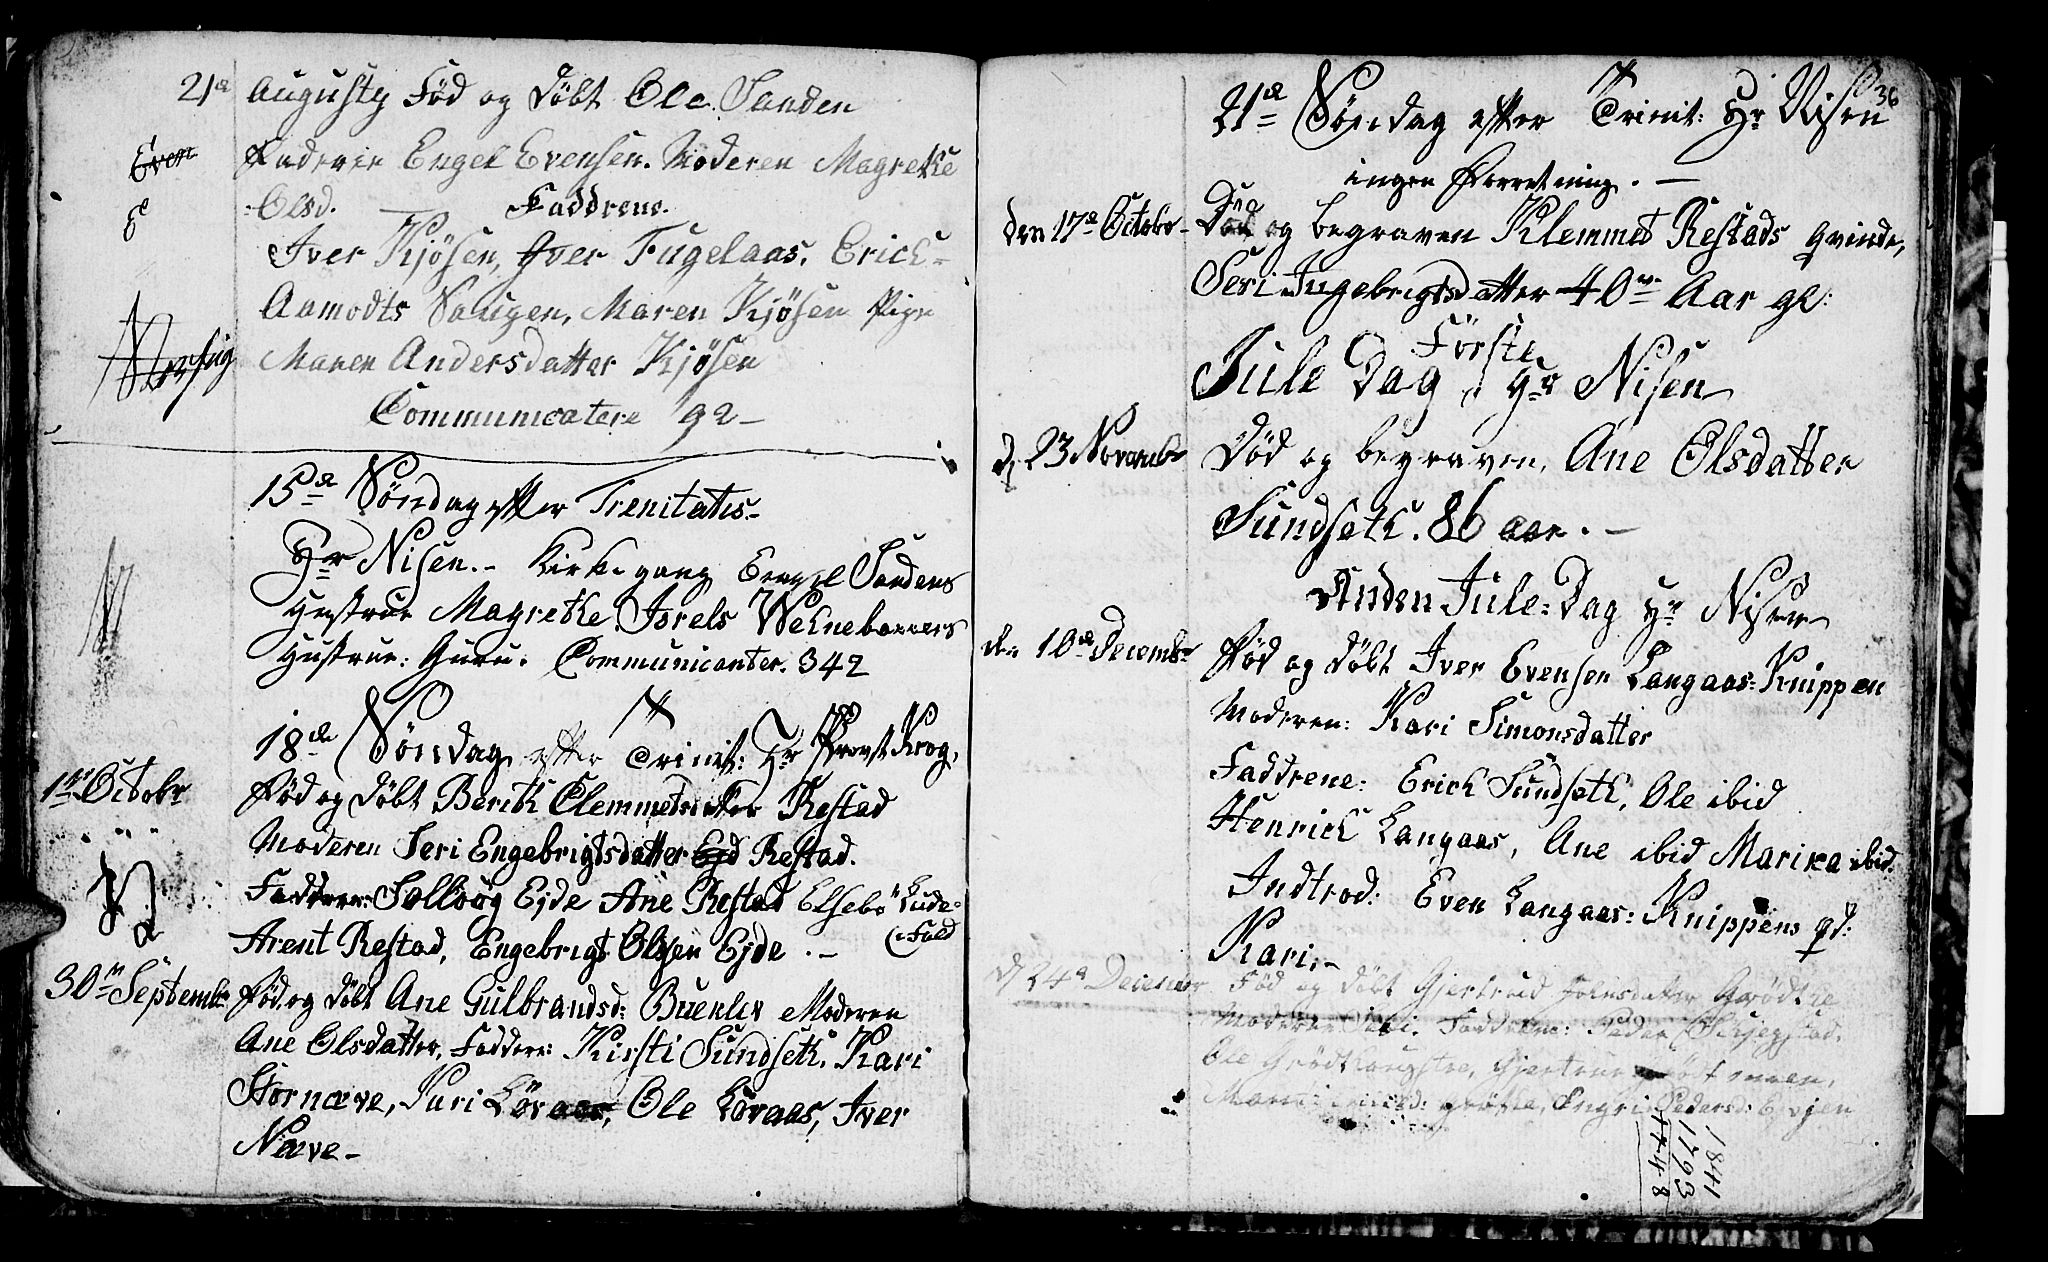 21de Augusty Fød og Døbt Ole Sanden
Even Faderen Engel Evensen. Moderen Magrethe
E Olsd. – Faddrene.
Iver Kjøsen, Iver Fugelaas, Erich
Aamodts Haugen, Maren Kjøsen Pige
Maren Andersdatter Kjøsen
Communicatere 92 –
15de Søndag efter Trenitatis –
Hr Nisen. – Kirkegang Engel Sandens
Hustrue Magrethe. Jorels
Hustrue: Guru. Communicanter. 342
18de Søndag efter Trinit: Hr Provst Krog,
1ste Octobr Fød og Døbt Berith Clemmetsdatter Restad
Moderen Seri Engebrigtsdatter Ejd Restad.
Faddrer: Sollvøg Ejde Ane Restad Elsebø Lude=
Arent Restad, Engebrigt Olsen Ejde . – (Fald
30m Septembr Fød og Døbt Ane Gulbrandsd: Buenlix Moderen
Ane Olsdatter, Faddere: Kirsti Sundseth, Kari
Stornæve, Kari Løvaas, Ole Løvaas, Iver
Næve –
36
21de Søndag efter Trinit: Hr Nisen
ingen Forretning. –
den 17de Octobr – Død og begraven Klemmet Restads Qvinde,
Seri Ingebrigtsdatter 40m Aar gl:
Første
Jule Dag, Hr Nisen
d, 23 Novembr Død og begraven, Ane Olsdatter
Sundseth. 86 aar. –
Anden Jule=Dag Hr Nisen
den 10de Decembr Fød og Døbt Iver Evensen Langaas=Knippen
Moderen: Kari Simonsdatter
Faddrene: Erich Sundseth, Ole ibid
Henrich Langaas, Ane ibid Marixa ibid.
Indtrod: Even Langaas=Knippens qd:
Kari. –
d, 24de December Fød og Døbt Gjertrud Johnsdatter Grødthe
Moderen Faddrene: Peder
Ole Gjertrue
Marit Ingri Pedersd: Evjen
1841
1793
48